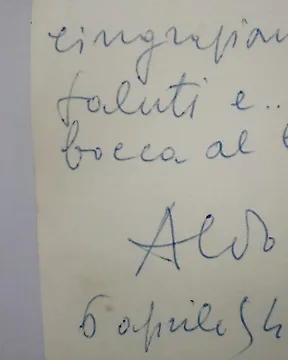 ringrazian
saluti e..
bocca al
Aldo
6 aprile 54